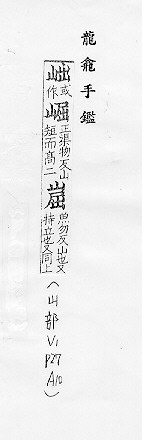 龍龕手鑑
或作崛正渠物反山短而高二崫魚勿反山也又特立也又同上(山部 V1 P27 A10)